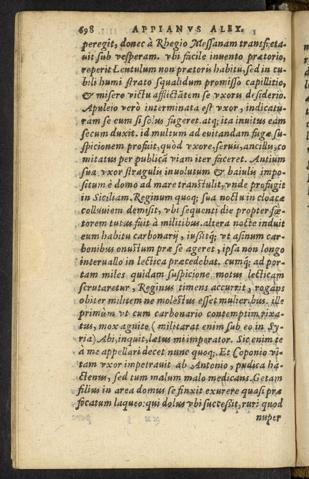 698 APPIANVS ALEX.
peregit, donec à Rhegio Messanam transfreta-
uit sub vesperam. vbi facile inuento prætorio,
reperit Lentulum non prætoris habitu, sed in cu-
bili humi strato squalidum promisso capillitio,
& misero victu afflictãtem se vxoru desiderio.
Apuleio verò interminata est vxor, indicatu-
ram se eum si solus fugeret. atq; ita inuitus eam
secum duxit. id multum ad euitandam fugæ su-
spicionem profuit, quòd vxore, seruis, ancillis, co
mitatus per publicã viam iter faceret. Antium
sua vxor stragulis inuolutum & baiulis impo-
situm è domo ad mare transtulit, vnde profugit
in Siciliam. Reginum quoq; sua noctu in cloacæ
colluuiem demisit, vbi sequenti die propter fœ-
torem tutus fuit à militibus. altera nocte induit
eum habitu carbonarij, iussitq; vt asinum car-
bonibus onustum præ se ageret, ipsa non longo
interuallo in lectica præcedebat. cumq; ad por-
tam miles quidam suspicione motus lecticam
scrutaretur, Reginus timens accurrit, rogans
obiter militem ne molestus esset mulieribus. ille
primùm vt cum carbonario contemptim rixa-
tus, mox agnito (militarat enim sub eo in Sy-
ria) Abi, inquit, lætus mi imperator. Sic enim te
à me appellari decet nunc quoq;. Et Coponio vi-
tam vxor impetrauit ab Antonio, pudica ha-
ctenus, sed tum malum malo medicans. Getam
filius in area domus se finxit exurere quasi præ
focatum laqueo: qui dolus vbi successit, ruri quod
nuper